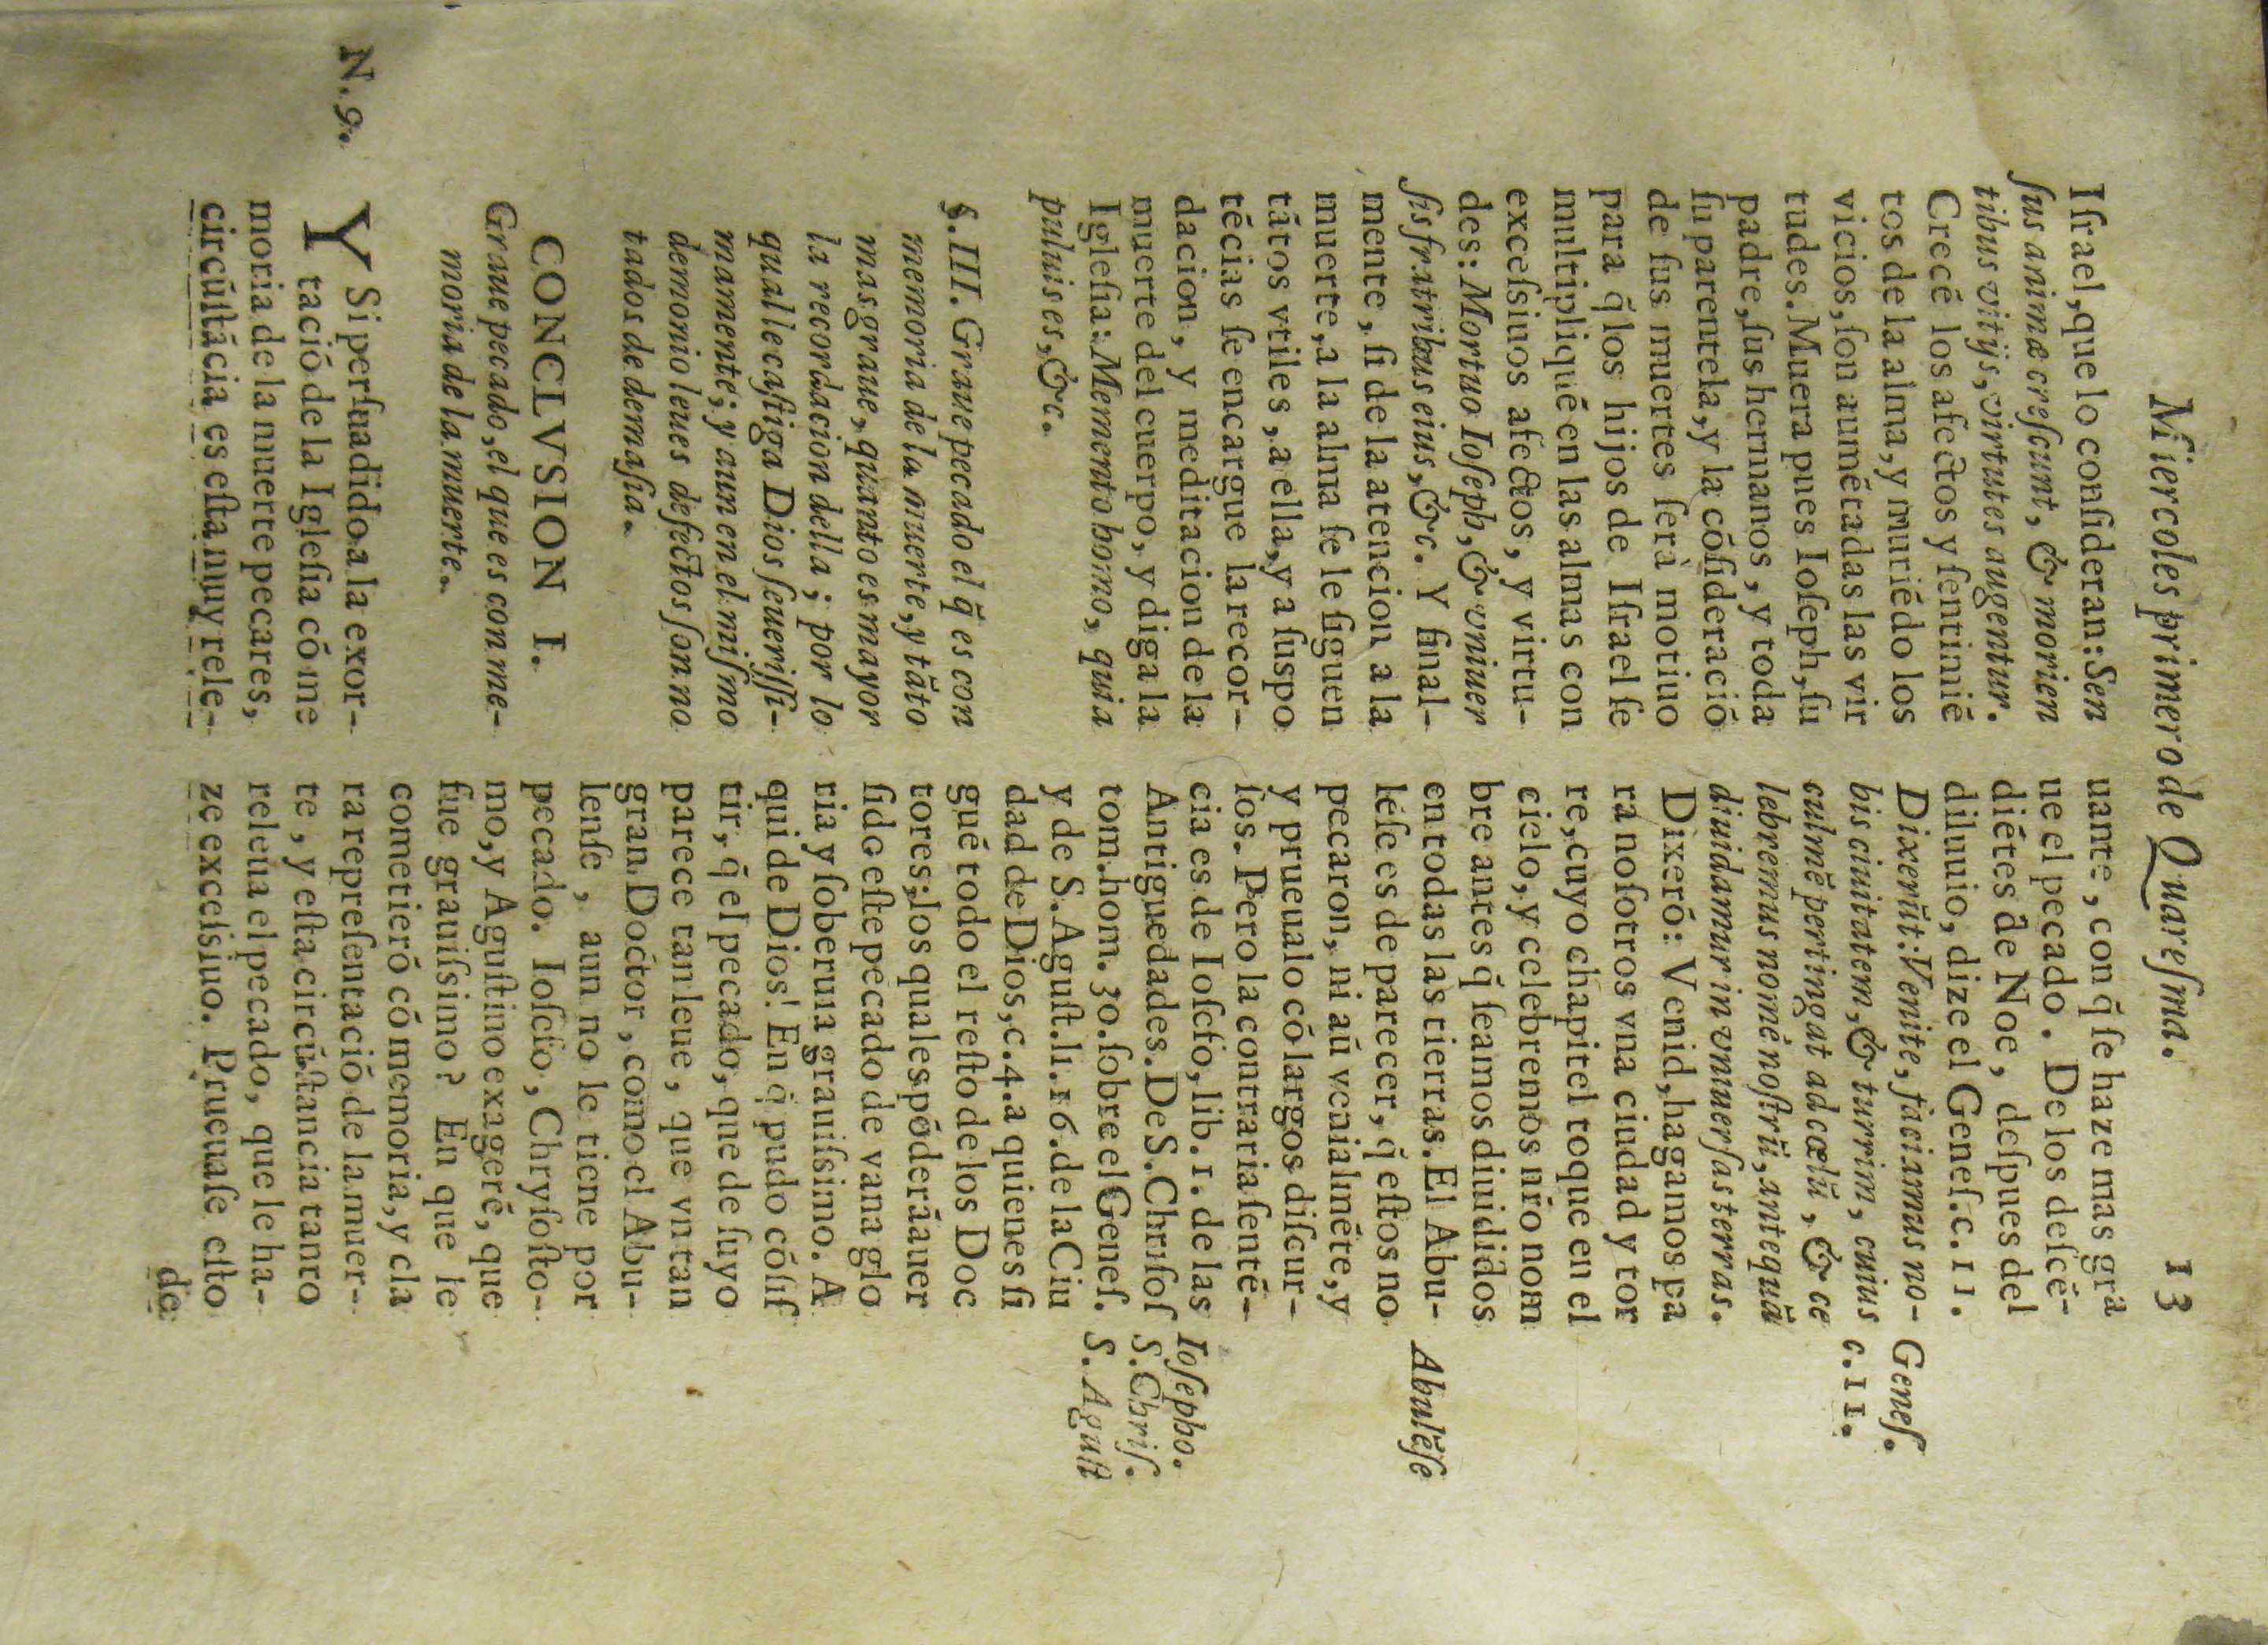 Miercoles primero de Quaresma. 13
Israel, que lo consideran: Sen
sus animæ crescunt, & morien
tibus vitijs, virtutes augentur.
Crecē los afectos y sentimiē
tos de la alma, y muriēdo los
vicios, son aumētadas las vir
tudes. Muera pues Ioseph, su
padre, sus hermanos, y toda
su parentela, y la cōsideraciō
de sus muertes serà motiuo
para q̄ los hijos de Israel se
multipliquē en las almas con
excessiuos afectos, y virtu-
des: Mortuo Ioseph, & vniuer
sis fratribus eius, &c. Y final-
mente, si de la atencion a la
muerte, a la alma se le siguen
tātos vtiles, a ella, y a suspo
tēcias se encargue la recor-
dacion, y meditacion de la
muerte del cuerpo, y diga la
Iglesia: Memento homo, quia
puluis es, &c.
§. III. Graue pecado el q̄ es con
memoria de la muerte, y tāto
mas graue, quanto es mayor
la recordacion della; por lo
qual le castiga Dios seuerissi-
mamente; y aun en el mismo
demonio leues defectos son no
tados de demasia.
CONCLVSION I.
Graue pecado, el que es con me-
moria de la muerte.
N. 9.
Y Si persuadido a la exor-
taciō de la Iglesia cō me
moria de la muerte pecares,
circūstācia es esta muy rele-
uante, con q̄ se haze mas gra
ue el pecado. De los descē-
diētes de Noe, despues del
diluuio, dize el Genes. c. 11.
Dixerūt: Venite, faciamus no-
bis ciuitatem, & turrim, cuius
culmē pertingat ad cœlū, & ce
lebremus nomē nostrū, antequā
diuidamur in vniuersas terras.
Dixerō: Venid, hagamos pa
ra nosotros vna ciudad y tor
re, cuyo chapitel toque en el
cielo, y celebremos nr̄o nom
bre antes q̄ seamos diuididos
en todas las tierras. El Abu-
lēse es de parecer, q̄ estos no
pecaron, ni aū venialmēte, y
y prueualo cō largos discur-
sos. Pero la contraria sentē-
cia es de Iosefo, lib. 1. de las
Antiguedades. De S. Chrisos
tom. hom. 30. sobre el Genes.
y de S. Agust. li. 16. de la Ciu
dad de Dios, c. 4. a quienes si
guē todo el resto de los Doc
tores; los quales pōderā auer
sido este pecado de vana glo
ria y soberuia grauissimo. A
qui de Dios! En q̄ pudo cōsis
tir, q̄ el pecado, que de suyo
parece tan leue, que vn tan
gran Doctor, como el Abu-
lense, aun no le tiene por
pecado. Iosefo, Chrysosto-
mo, y Agustino exagerē, que
fue grauissimo? En que le
cometierō cō memoria, y cla
ra representaciō de la muer-
te, y esta circūstancia tanto
releua el pecado, que le ha-
ze excessiuo. Prueuase esto
de
Genes.
c. 11.
Abulēse
Iosepho.
S. Chris.
S. Agust